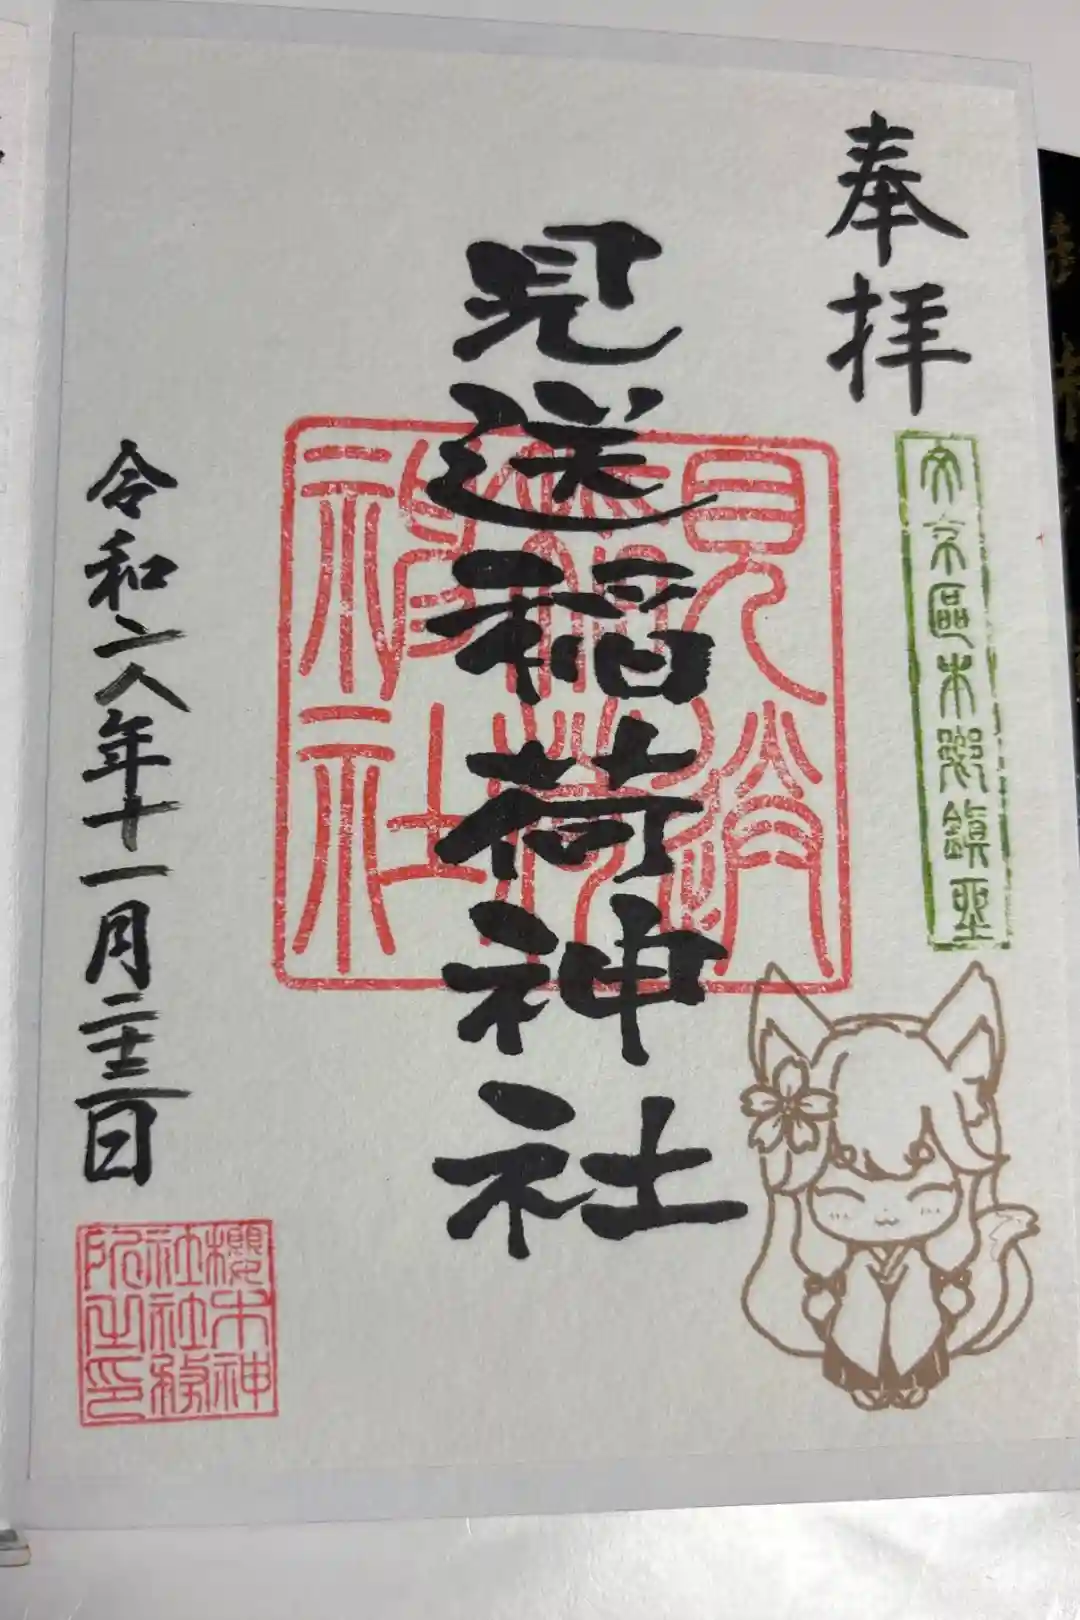 奉拝
文京區本郷鎮坐
見送稲荷神社
見送
稲荷
神社
令和六年十一月二十三日
櫻木神
社社務
所之印